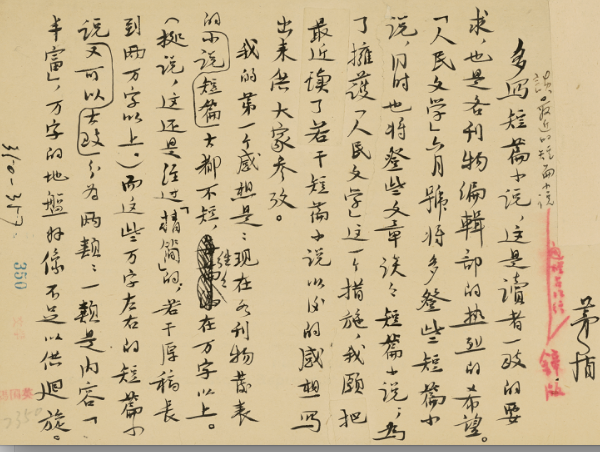 茅盾
谈最近的短篇小说
多写短篇小说，这是讀者一致的要
求，也是各刊物编輯部的热烈的希望。
「人民文学」六月號将多登些短篇小
说，同时也将登些文章谈谈短篇小说；为
了擁護「人民文学」这一个措施，我願把
最近读了若干短篇小说以后的感想写
出来供大家参攷。
我的第一个感想是：现在各刊物發表
的小说短篇大都不短，在万字以上。
（据说，这还是经过「精简」的，若干原稿长
到两万字以上。）而这些万字左右的短篇小
说又可以大致分为两類：一類是内容「
丰富」，万字的地盤好像不足以供迴旋。
310-357
350